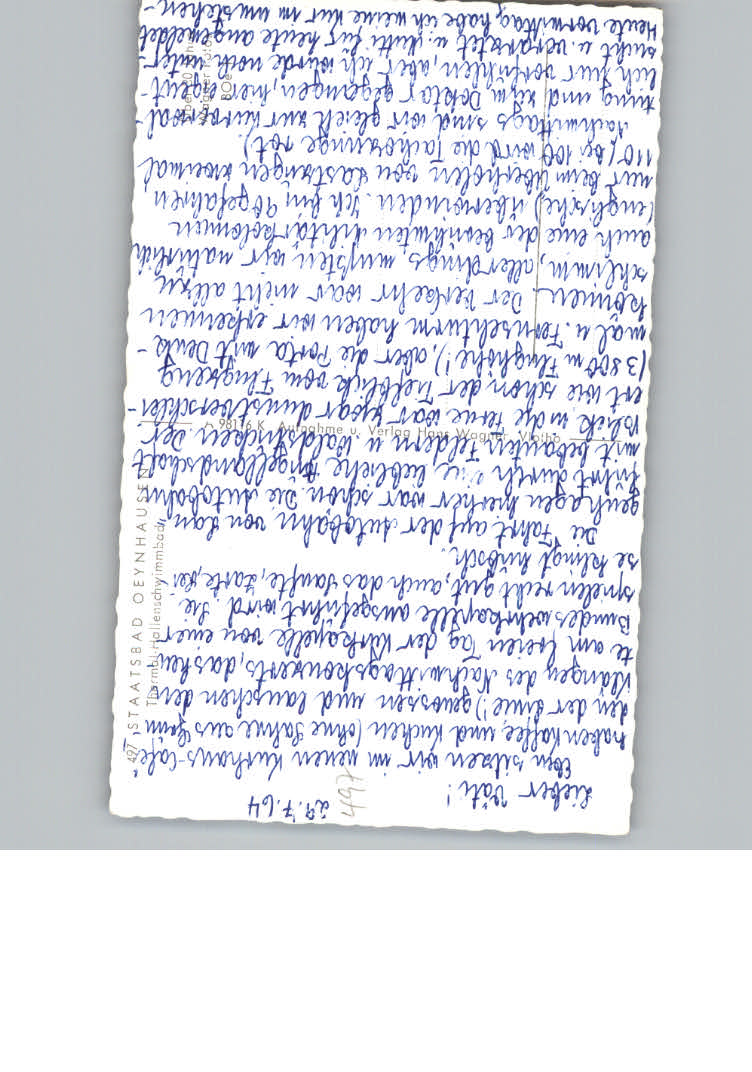 29.7.64
497
Lieber Vati!
Eben sitzen wir im neuen Kurhaus-Café,
haben Kaffee und Kuchen (ohne Sahne aus "Grün-
den der Linie"!) genossen und lauschen den
Klängen des Nachmittagskonzerts, das heu-
te am freien Tag der Kurkapelle von einer
Bundeswehrkapelle ausgeführt wird. Sie
spielen recht gut, auch das Sanfte, Zarte, Lei-
se klingt hübsch.
Die Fahrt auf der Autobahn von Lan-
genhagen hierher war schön. Die Autobahn
führt durch eine liebliche Hügellandschaft
mit bebauten Feldern u. Waldstücken. Der
Blick in die Ferne war zwar dunstverschlei-
ert wie schon der Tiefblick vom Flugzeug
(3800 m Flughöhe!), aber die Porta mit Denk-
mal u. Fernsehturm haben wir erkennen
können. Der Verkehr war nicht allzu
schlimm, allerdings mußten wir natürlich
auch eine der berühmten Militärkolonnen
(englische) überwinden. Ich bin 90 gefahren
nur beim Überholen von Lastzügen zweimal
110 (bei 100 wird die Tachoanzeige rot).
Nachmittags sind wir gleich zur Kurverwal-
tung und zum Doktor gegangen, hier eigent-
lich nur vorfühlen, aber ich wurde noch unter-
sucht u. verarztet u. Mutti für heute angemeldet
Heute vormittag habe ich meine Kur im
497 STAATSBAD OEYNHAUSEN
Thermal-Hallenschwimmbad
98116 K Aufnahme u. Verlag Hans Wagner, Vlotho